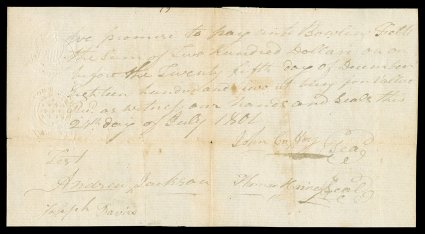 we promise to pay unto Bowling
the Sum of Two Hundred Dollars on or
before the Twenty fifth day of December
Eighteen hundred and it being for Value
as witness our hands and Seals this
day of July 1801
John Coffey Seal
Test
Andrew Jackson Thomas Seal
Joseph David